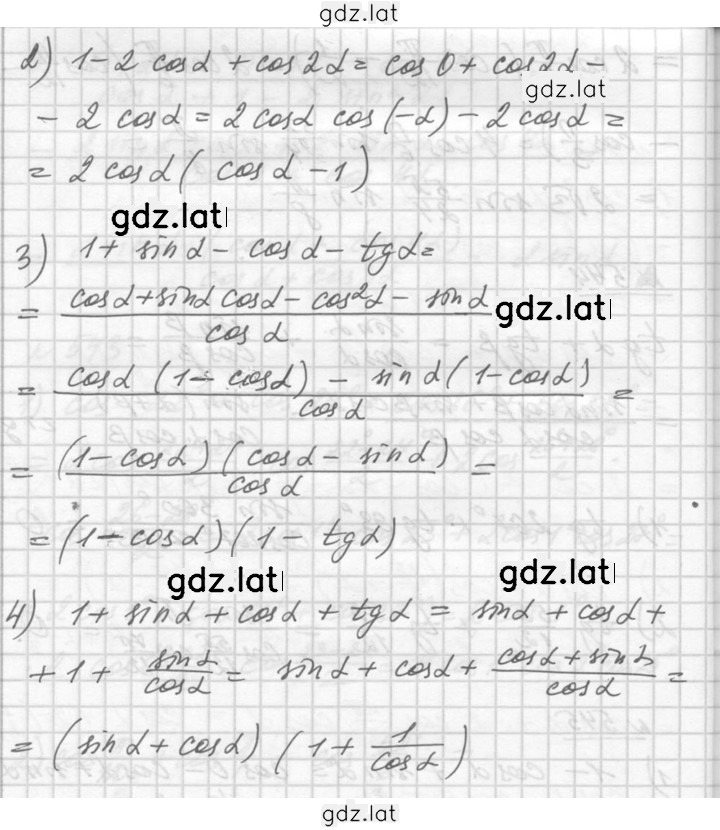 gdz.lat
2) 1 - 2 cos α + cos 2α = cos 0 + cos 2α -
gdz.lat
- 2 cos α = 2 cos α cos (-α) - 2 cos α =
= 2 cos α ( cos α - 1)
gdz.lat
3) 1 + sin α - cos α - tg α =
= (cos α + sin α cos α - cos² α - sin α) / cos α
gdz.lat
= (cos α (1 - cos α) - sin α (1 - cos α)) / cos α =
= ((1 - cos α) (cos α - sin α)) / cos α =
= (1 - cos α) (1 - tg α)
gdz.lat
gdz.lat
4) 1 + sin α + cos α + tg α = sin α + cos α +
+ 1 + sin α / cos α = sin α + cos α + (cos α + sin α) / cos α =
= (sin α + cos α) (1 + 1 / cos α)
gdz.lat